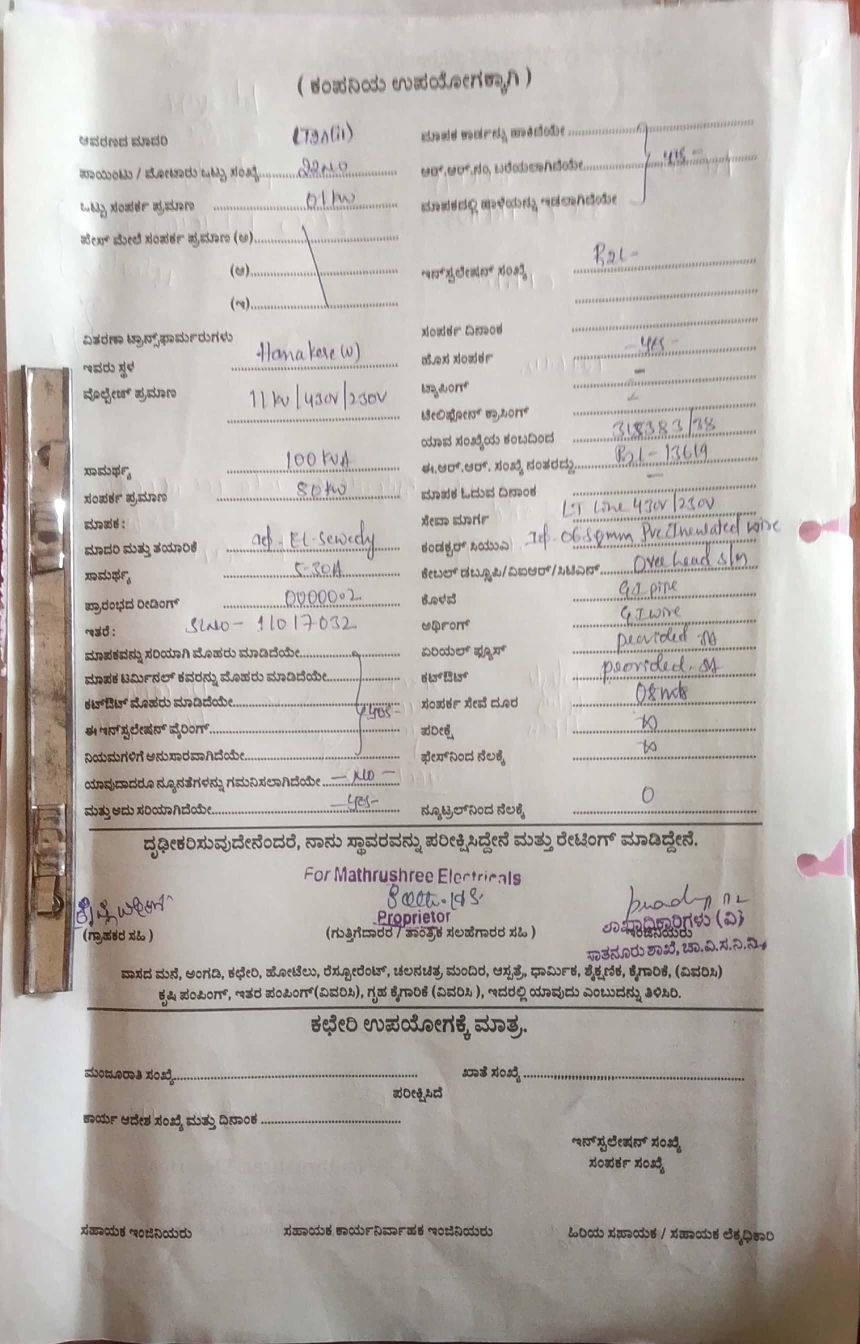 ( ಕಂಪನಿಯ ಉಪಯೋಗಕ್ಕಾಗಿ )
ಆವರಣದ ಮಾದರಿ LT3A(ii)
ಪಾಯಿಂಟು / ಮೋಟಾರು ಒಟ್ಟು ಸಂಖ್ಯೆ
ಒಟ್ಟು ಸಂಪರ್ಕ ಪ್ರಮಾಣ 01kw
ಫೇಸ್ ಮೇಲೆ ಸಂಪರ್ಕ ಪ್ರಮಾಣ (ಅ)
(ಆ)
(ಇ)
ವಿತರಣಾ ಟ್ರಾನ್ಸ್‌ಫಾರ್ಮರುಗಳು
ಇವರು ಸ್ಥಳ Hanakere (v)
ವೊಲ್ಟೇಜ್ ಪ್ರಮಾಣ 11kv/430V/230V
ಸಾಮರ್ಥ್ಯ 100KVA
ಸಂಪರ್ಕ ಪ್ರಮಾಣ 80kw
ಮಾಪಕ :
ಮಾದರಿ ಮತ್ತು ತಯಾರಿಕೆ 1ϕ- EL-Sewedy
ಸಾಮರ್ಥ್ಯ 5-30A
ಪ್ರಾರಂಭದ ರೀಡಿಂಗ್ 00000.2
ಇತರೆ : SLNO-11017032
ಮಾಪಕವನ್ನು ಸರಿಯಾಗಿ ಮೊಹರು ಮಾಡಿದೆಯೇ
ಮಾಪಕ ಟರ್ಮಿನಲ್ ಕವರನ್ನು ಮೊಹರು ಮಾಡಿದೆಯೇ
ಕಟ್‌ಔಟ್ ಮೊಹರು ಮಾಡಿದೆಯೇ -yes-
ಈ ಇನ್‌ಸ್ಟಲೇಷನ್ ವೈರಿಂಗ್
ನಿಯಮಗಳಿಗೆ ಅನುಸಾರವಾಗಿದೆಯೇ
ಯಾವುದಾದರೂ ನ್ಯೂನತೆಗಳನ್ನು ಗಮನಿಸಲಾಗಿದೆಯೇ -NO-
ಮತ್ತು ಅದು ಸರಿಯಾಗಿದೆಯೇ -yes-
ಮಾಪಕ ಕಾರ್ಡನ್ನು ಹಾಕಿದೆಯೇ
ಆರ್.ಆರ್.ನಂ. ಬರೆಯಲಾಗಿದೆಯೇ yes-
ಮಾಪಕದಲ್ಲಿ ಹಾಳೆಯನ್ನು ಇಡಲಾಗಿದೆಯೇ
ಇನ್‌ಸ್ಟಲೇಷನ್ ಸಂಖ್ಯೆ R2L-
ಸಂಪರ್ಕ ದಿನಾಂಕ
ಹೊಸ ಸಂಪರ್ಕ -yes-
ಟ್ಯಾಪಿಂಗ್ -
ಟೇಲಿಫೋನ್ ಕ್ರಾಸಿಂಗ್
ಯಾವ ಸಂಖ್ಯೆಯ ಕಂಬದಿಂದ 318383/38
ಈ.ಆರ್.ಆರ್. ಸಂಖ್ಯೆ ನಂತರದ್ದು R2L-13619
ಮಾಪಕ ಓದುವ ದಿನಾಂಕ -
ಸೇವಾ ಮಾರ್ಗ LT Line 430V/230V
ಕಂಡಕ್ಟರ್ ಸಿಯುಎ 1ϕ- 06 Sqmm Pvc Insulated wire
ಕೇಬಲ್ ಡಬ್ಲೂಪಿ/ವಿಐಆರ್/ಸಿಟಿಎಸ್ Over head s/m
ಕೊಳವೆ GI pipe
ಅರ್ಥಿಂಗ್ GI wire
ಏರಿಯಲ್ ಫ್ಯೂಸ್ provided
ಕಟ್‌ಔಟ್ provided
ಸಂಪರ್ಕ ಸೇವೆ ದೂರ 08 mts
ಪರೀಕ್ಷೆ
ಫೇಸ್‌ನಿಂದ ನೆಲಕ್ಕೆ
ನ್ಯೂಟ್ರಲ್‌ನಿಂದ ನೆಲಕ್ಕೆ 0
ದೃಢೀಕರಿಸುವುದೇನೆಂದರೆ, ನಾನು ಸ್ಥಾವರವನ್ನು ಪರೀಕ್ಷಿಸಿದ್ದೇನೆ ಮತ್ತು ರೇಟಿಂಗ್ ಮಾಡಿದ್ದೇನೆ.
For Mathrushree Electricals
Proprietor
(ಗ್ರಾಹಕರ ಸಹಿ )
(ಗುತ್ತಿಗೆದಾರರ / ತಾಂತ್ರಿಕ ಸಲಹೆಗಾರರ ಸಹಿ )
ಶಾಖಾಧಿಕಾರಿಗಳು (ವಿ)
ಇಂಜಿನಿಯರು
ಸಾತನೂರು ಶಾಖೆ, ಚಾ.ವಿ.ಸ.ನಿ.ನಿ.
ವಾಸದ ಮನೆ, ಅಂಗಡಿ, ಕಛೇರಿ, ಹೋಟೆಲು, ರೆಸ್ಟೋರೆಂಟ್, ಚಲನಚಿತ್ರ ಮಂದಿರ, ಆಸ್ಪತ್ರೆ, ಧಾರ್ಮಿಕ, ಶೈಕ್ಷಣಿಕ, ಕೈಗಾರಿಕೆ, (ವಿವರಿಸಿ)
ಕೃಷಿ ಪಂಪಿಂಗ್, ಇತರ ಪಂಪಿಂಗ್(ವಿವರಿಸಿ), ಗೃಹ ಕೈಗಾರಿಕೆ (ವಿವರಿಸಿ ), ಇದರಲ್ಲಿ ಯಾವುದು ಎಂಬುದನ್ನು ತಿಳಿಸಿರಿ.
ಕಛೇರಿ ಉಪಯೋಗಕ್ಕೆ ಮಾತ್ರ.
ಮಂಜೂರಾತಿ ಸಂಖ್ಯೆ
ಖಾತೆ ಸಂಖ್ಯೆ
ಪರೀಕ್ಷಿಸಿದೆ
ಕಾರ್ಯ ಆದೇಶ ಸಂಖ್ಯೆ ಮತ್ತು ದಿನಾಂಕ
ಇನ್‌ಸ್ಟಲೇಷನ್ ಸಂಖ್ಯೆ
ಸಂಪರ್ಕ ಸಂಖ್ಯೆ
ಸಹಾಯಕ ಇಂಜಿನಿಯರು
ಸಹಾಯಕ ಕಾರ್ಯನಿರ್ವಾಹಕ ಇಂಜಿನಿಯರು
ಹಿರಿಯ ಸಹಾಯಕ / ಸಹಾಯಕ ಲೆಕ್ಕಧಿಕಾರಿ